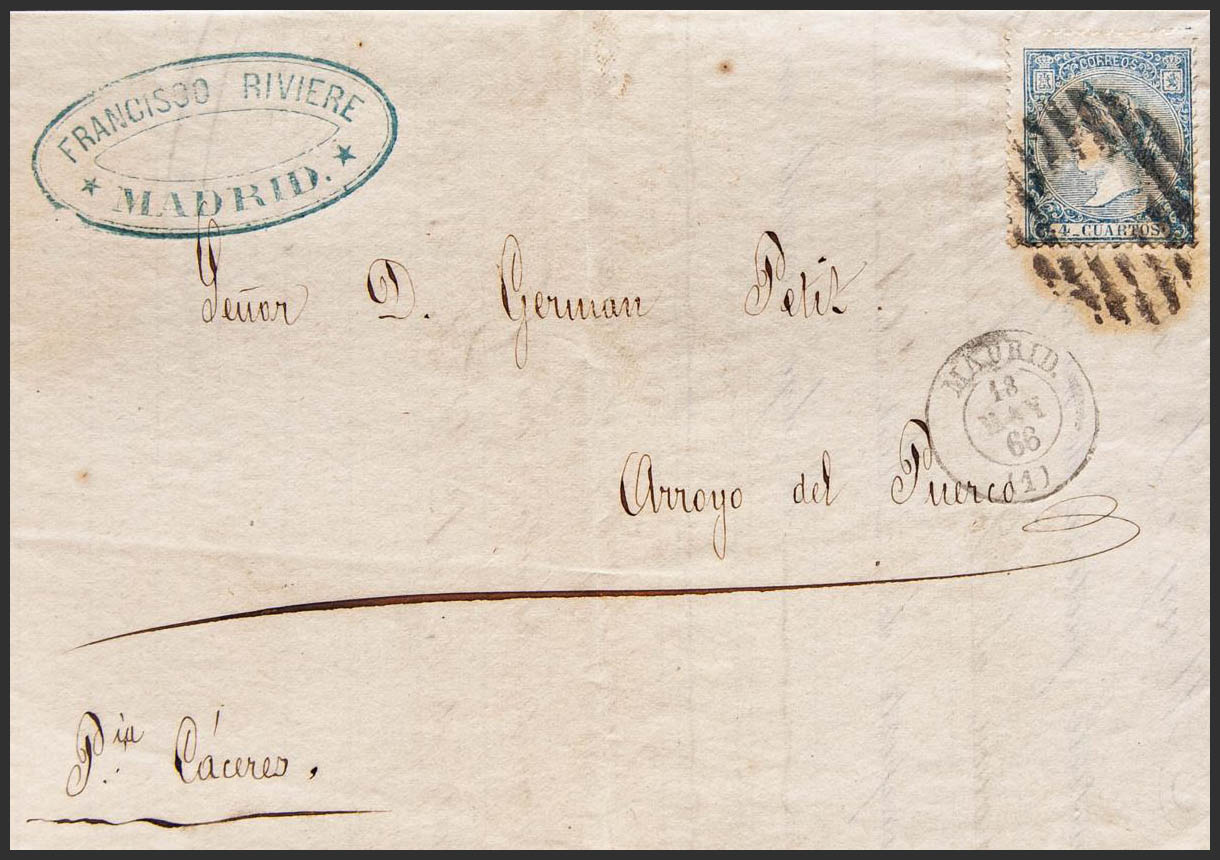 FRANCISCO RIVIERE
★ MADRID. ★
CORREOS
4 CUARTOS
Señor D. German Petit.
MADRID.
18
MAY
66
(1)
Arroyo del Puerco
P.ia Cáceres.